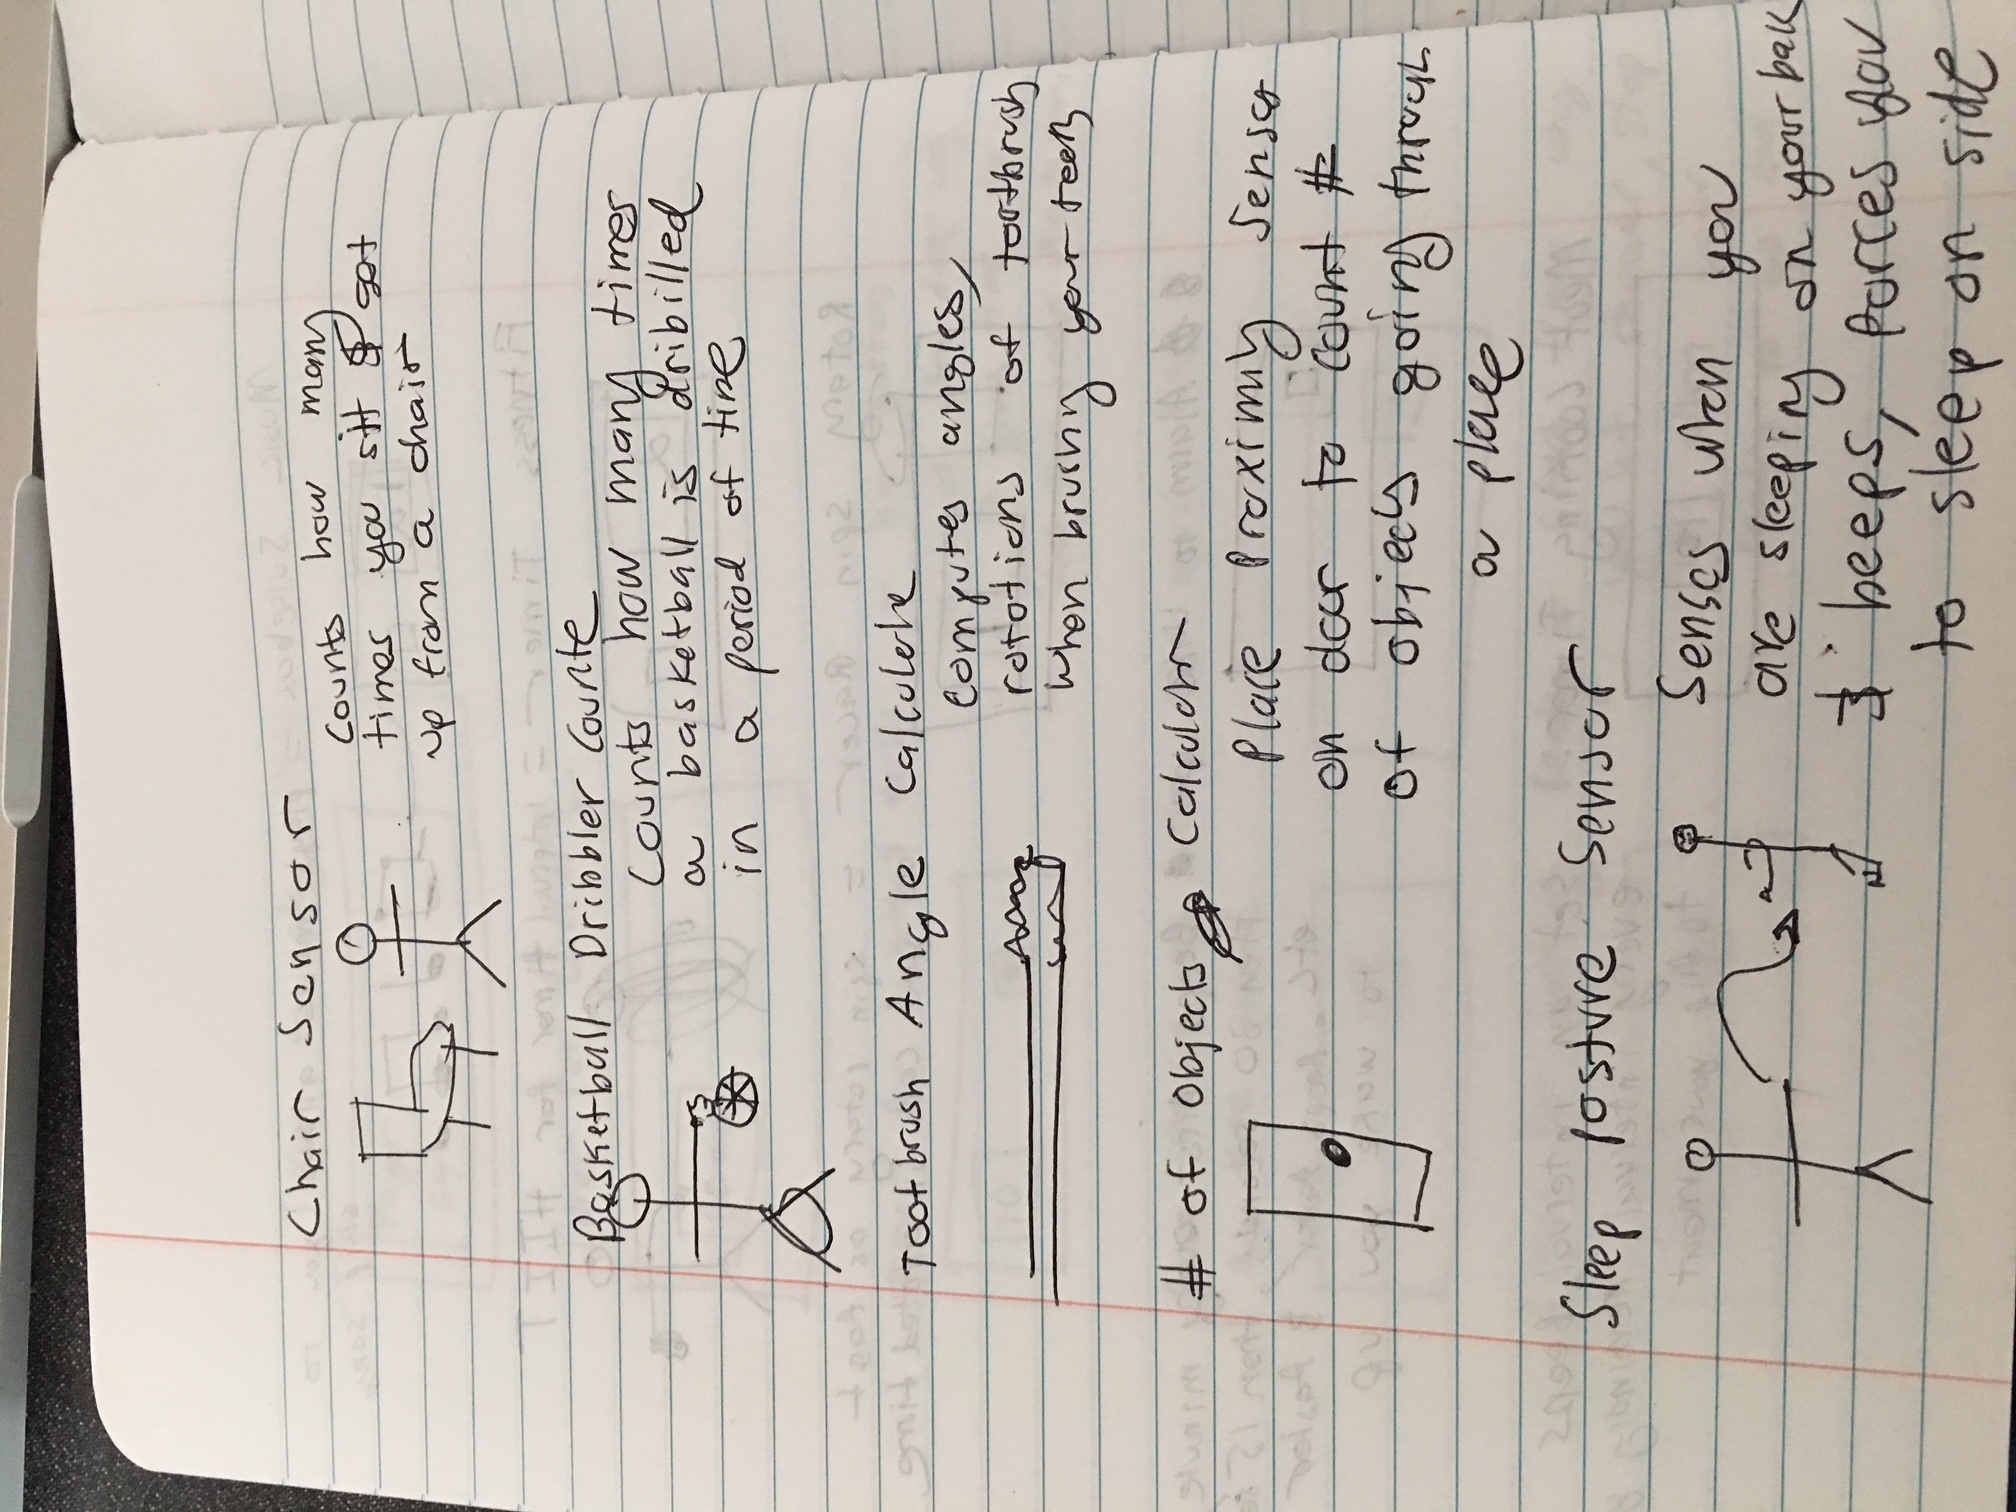 Chair Sensor
Counts how many
times you sit & get
up from a chair
Basketball Dribbler Counte
Counts how many times
a basketball is dribilled
in a period of time
Tootbrush Angle Calculate
Computes angles,
rotations of tootbrush
when brushing your teeth
# of Objects Calculator
Place Proximity Sensor
on door to count #
of objects going through
a place
Sleep Posture Sensor
Senses when you
are sleeping on your back
& beeps, forces you
to sleep on side